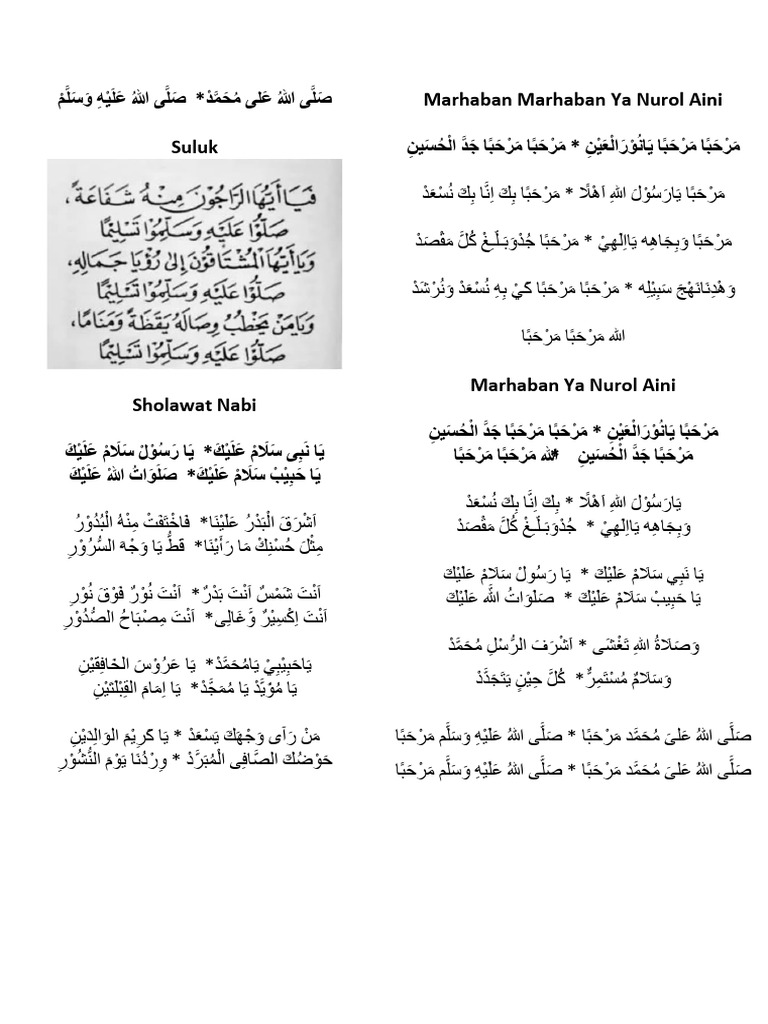 صَلَّى اللهُ عَلى مُحَمَّدْ* صَلَّى اللهُ عَلَيْهِ وَسَلَّمْ
Suluk
فَيَا أَيُّهَا الرَّاجُوْنَ مِنْهُ شَفَاعَةً،
صَلُّوْا عَلَيْهِ وَسَلِّمُوْا تَسْلِيْمًا
وَيَا أَيُّهَا الْمُشْتَاقُوْنَ اِلٰى رُؤْيَا جَمَالِهِ،
صَلُّوْا عَلَيْهِ وَسَلِّمُوْا تَسْلِيْمًا
وَيَا مَنْ يَخْطُبُ وِصَالَهُ يَقَظَةً وَمَنَامًا،
صَلُّوْا عَلَيْهِ وَسَلِّمُوْا تَسْلِيْمًا
Sholawat Nabi
يَا نَبِى سَلَامْ عَلَيْكَ* يَا رَسُوْلْ سَلَامْ عَلَيْكَ
يَا حَبِيْبْ سَلَامْ عَلَيْكَ* صَلَوَاتُ اللهْ عَلَيْكَ
اَشْرَقَ الْبَدْرُ عَلَيْنَا* فَاخْتَفَتْ مِنْهُ الْبُدُوْرُ
مِثْلَ حُسْنِكْ مَا رَأَيْنَا* قَطُّ يَا وَجْهَ السُّرُوْرِ
اَنْتَ شَمْسٌ اَنْتَ بَدْرٌ* اَنْتَ نُوْرٌ فَوْقَ نُوْرِ
اَنْتَ اِكْسِيْرٌ وَّغَالِى* اَنْتَ مِصْبَاحُ الصُّدُوْرِ
يَاحَبِيْبِيْ يَامُحَمَّدْ* يَا عَرُوْسَ الخَافِقَيْنِ
يَا مُوَيَّدْ يَا مُمَجَّدْ* يَا اِمَامَ القِبْلَتَيْنِ
مَنْ رَآى وَجْهَكَ يَسْعَدْ * يَا كَرِيْمَ الوَالِدَيْنِ
حَوْضُكَ الصَّافِى الْمُبَرَّدْ * وِرْدُنَا يَوْمَ النُّشُوْرِ
Marhaban Marhaban Ya Nurol Aini
مَرْحَبًا مَرْحَبًا يَانُوْرَالْعَيْنِ * مَرْحَبًا مَرْحَبًا جَدَّ الْحُسَيْنِ
مَرْحَبًا يَارَسُوْلَ اللهِ اَهْلًا * مَرْحَبًا بِكَ اِنَّا بِكَ نُسْعَدْ
مَرْحَبًا وَبِجَاهِه يَااِلَهِيْ * مَرْحَبًا جُدْوَبَلِّغْ كُلَّ مَقْصَدْ
وَهْدِنَانَهْجَ سَبِيْلِه * مَرْحَبًا مَرْحَبًا كَيْ بِهِ نُسْعَدْ وَنُرْشَدْ
الله مَرْحَبًا مَرْحَبًا
Marhaban Ya Nurol Aini
مَرْحَبًا يَانُوْرَالْعَيْنِ * مَرْحَبًا مَرْحَبًا جَدَّ الْحُسَيْنِ
مَرْحَبًا جَدَّ الْحُسَيْنِ * الله مَرْحَبًا مَرْحَبًا
يَارَسُوْلَ اللهِ اَهْلًا * بِكَ اِنَّا بِكَ نُسْعَدْ
وَبِجَاهِه يَااِلَهِيْ * جُدْوَبَلِّغْ كُلَّ مَقْصَدْ
يَا نَبِي سَلَامْ عَلَيْكَ * يَا رَسُولْ سَلَامْ عَلَيْكَ
يَا حَبِيبْ سَلَامْ عَلَيْكَ * صَلَوَاتُ اللَّه عَلَيْكَ
وَصَلاَةُ اللهِ تَغْشَى * اَشْرَفَ الرُّسْلِ مُحَمَّدْ
وَسَلامٌ مُسْتَمِرٌّ* كُلَّ حِيْنٍ يَتَجَدَّدْ
صَلَّى اللهُ عَلىَ مُحَمَّد مَرْحَبًا * صَلَّى اللهُ عَلَيْهِ وَسَلَّم مَرْحَبًا
صَلَّى اللهُ عَلىَ مُحَمَّد مَرْحَبًا * صَلَّى اللهُ عَلَيْهِ وَسَلَّم مَرْحَبًا